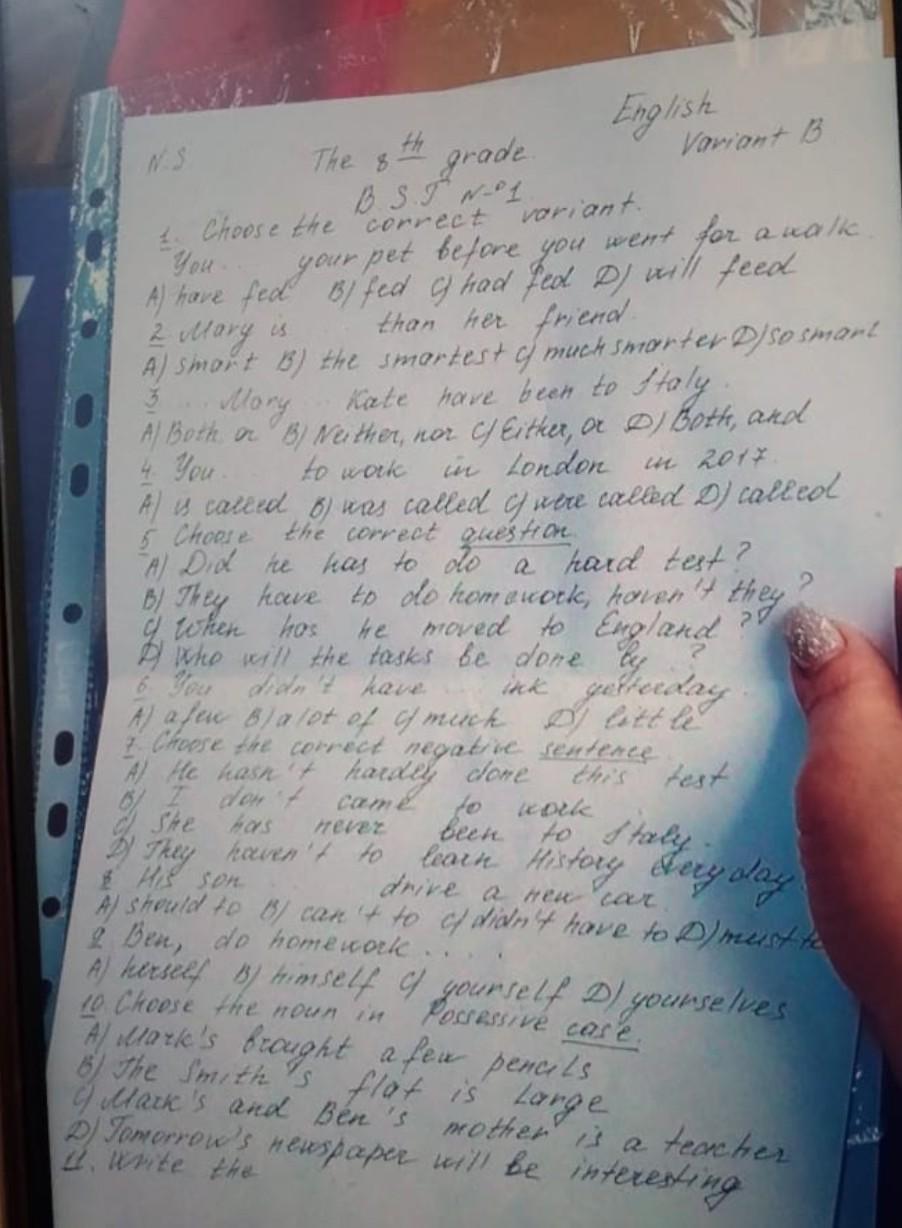 English
N.S The 8th grade. Variant B
B.S.T N-º1.
1. Choose the correct variant.
You... your pet before you went for a walk.
A) have fed B) fed C) had fed D) will feed
2 Mary is ... than her friend.
A) smart B) the smartest C) much smarter D) so smart
3 ... Mary ... Kate have been to Italy.
A) Both or B) Neither, nor C) Either, or D) Both, and
4. You .... to work in London in 2017.
A) is called B) was called C) were called D) called
5 Choose the correct question.
A) Did he has to do a hard test?
B) They have to do homework, haven't they?
C) When has he moved to England?
D) Who will the tasks be done by ?
6 You didn't have ... ink yesterday.
A) a few B) a lot of C) much D) little
7. Choose the correct negative sentence.
A) He hasn't hardly done this test
B) I don't came to work
C) She has never been to Italy.
D) They haven't to learn History every day.
8 His son ... drive a new car.
A) should to B) can't to C) didn't have to D) must to
9 Ben, do homework .....
A) herself B) himself C) yourself D) yourselves
10. Choose the noun in Possessive case.
A) Mark's brought a few pencils
B) The Smith's flat is large
C) Mark's and Ben's mother is a teacher
D) Tomorrow's newspaper will be interesting
11. Write the